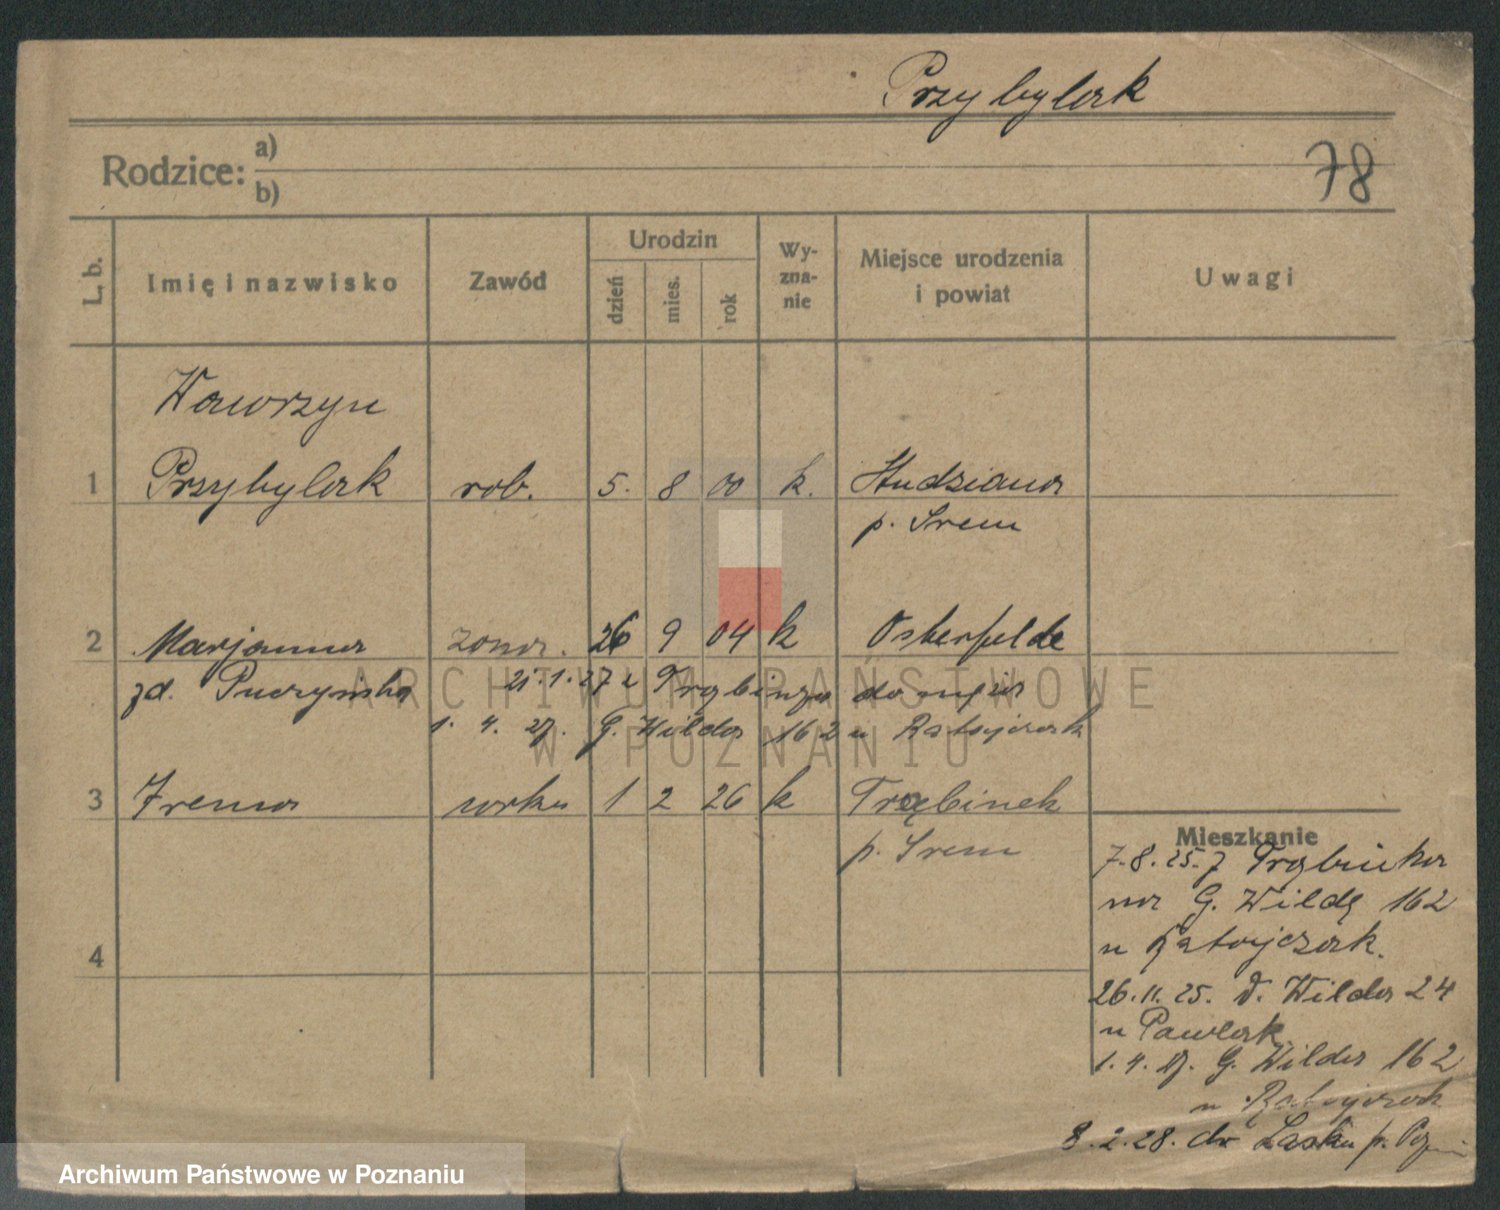 Przybylak
78
Rodzice: a)
b)
L. b.
Imię i nazwisko
Zawód
Urodzin
dzień
mies.
rok
Wy-
zna-
nie
Miejsce urodzenia
i powiat
Uwagi
Wawrzyn
1 Przybylak rob. 5. 8 00 k. Studzianna
p. Śrem
2 Marjanna żona. 26 9 04 k Osterfelde
zd. Puczyńska 21.1.27 z Trąbinka do męża
1. 4. 27. G. Wilda 162 u Ratajczak
3 Irena córka 1 2 26 k Trąbinek
p. Śrem
4
Mieszkanie
7.8.25. z Trąbinka
na G. Wildę 162
u Ratajczak.
26.11.25. D. Wilda 24
u Pawlak
1.4.27. G. Wilda 162
u Ratajczak
8.2.28. do Lasku p. Pozn
ARCHIWUM PAŃSTWOWE
W POZNANIU
Archiwum Państwowe w Poznaniu